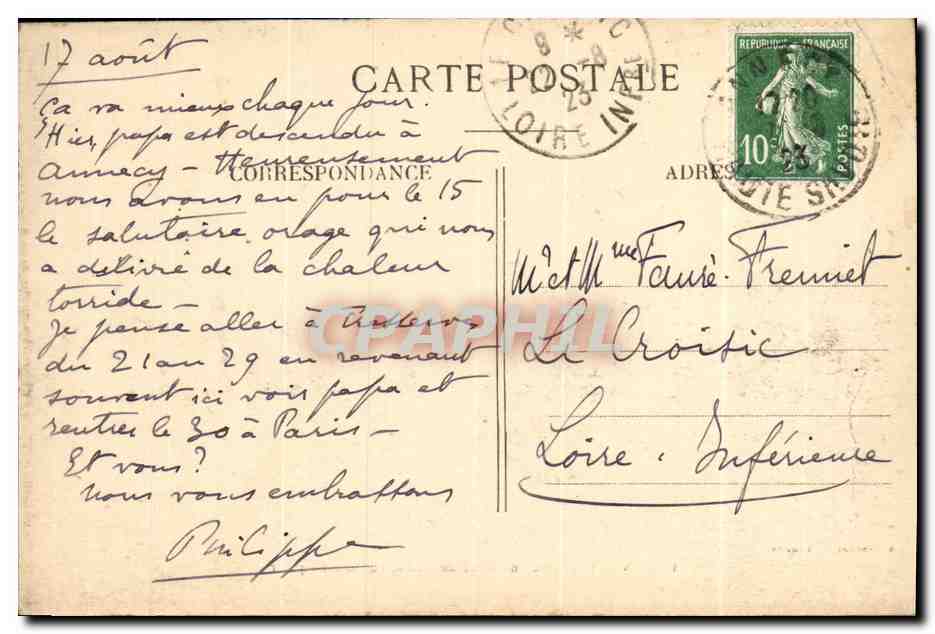 CARTE POSTALE
CORRESPONDANCE
ADRES
17 août
ça va mieux chaque jour.
Hier, papa est descendu à
Annecy - Heureusement
nous avons eu pour le 15
le salutaire orage qui nous
a délivré de la chaleur
torride -
Je pense aller à
du 21 au 29 en revenant
souvent ici voir papa et
rentrer le 30 à Paris -
Et vous?
nous vous embrassons
Philippe
Mr et Mme Fauré-Fremiet
Le Croisic
Loire-Inférieure
REPUBLIQUE FRANÇAISE
10
POSTES
LOIRE INFRE
23
CPAPHIL